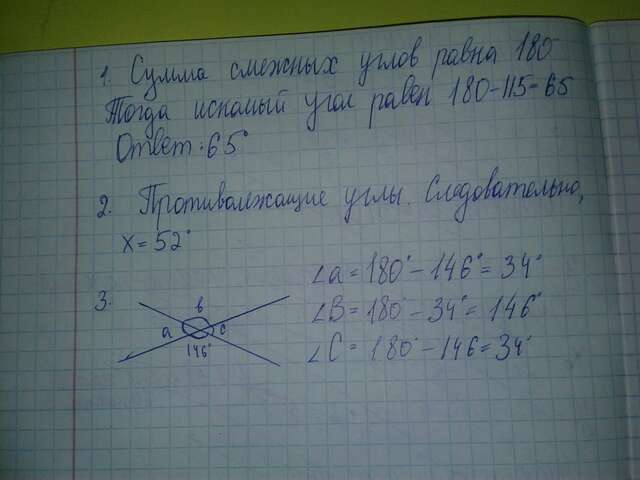 1. Сумма смежных углов равна 180°
Тогда искомый угол равен 180-115=65
Ответ: 65°
2. Противолежащие углы. Следовательно,
x = 52°
3.
b
a
c
146°
∠a = 180° - 146° = 34°
∠B = 180° - 34° = 146°
∠C = 180° - 146 = 34°